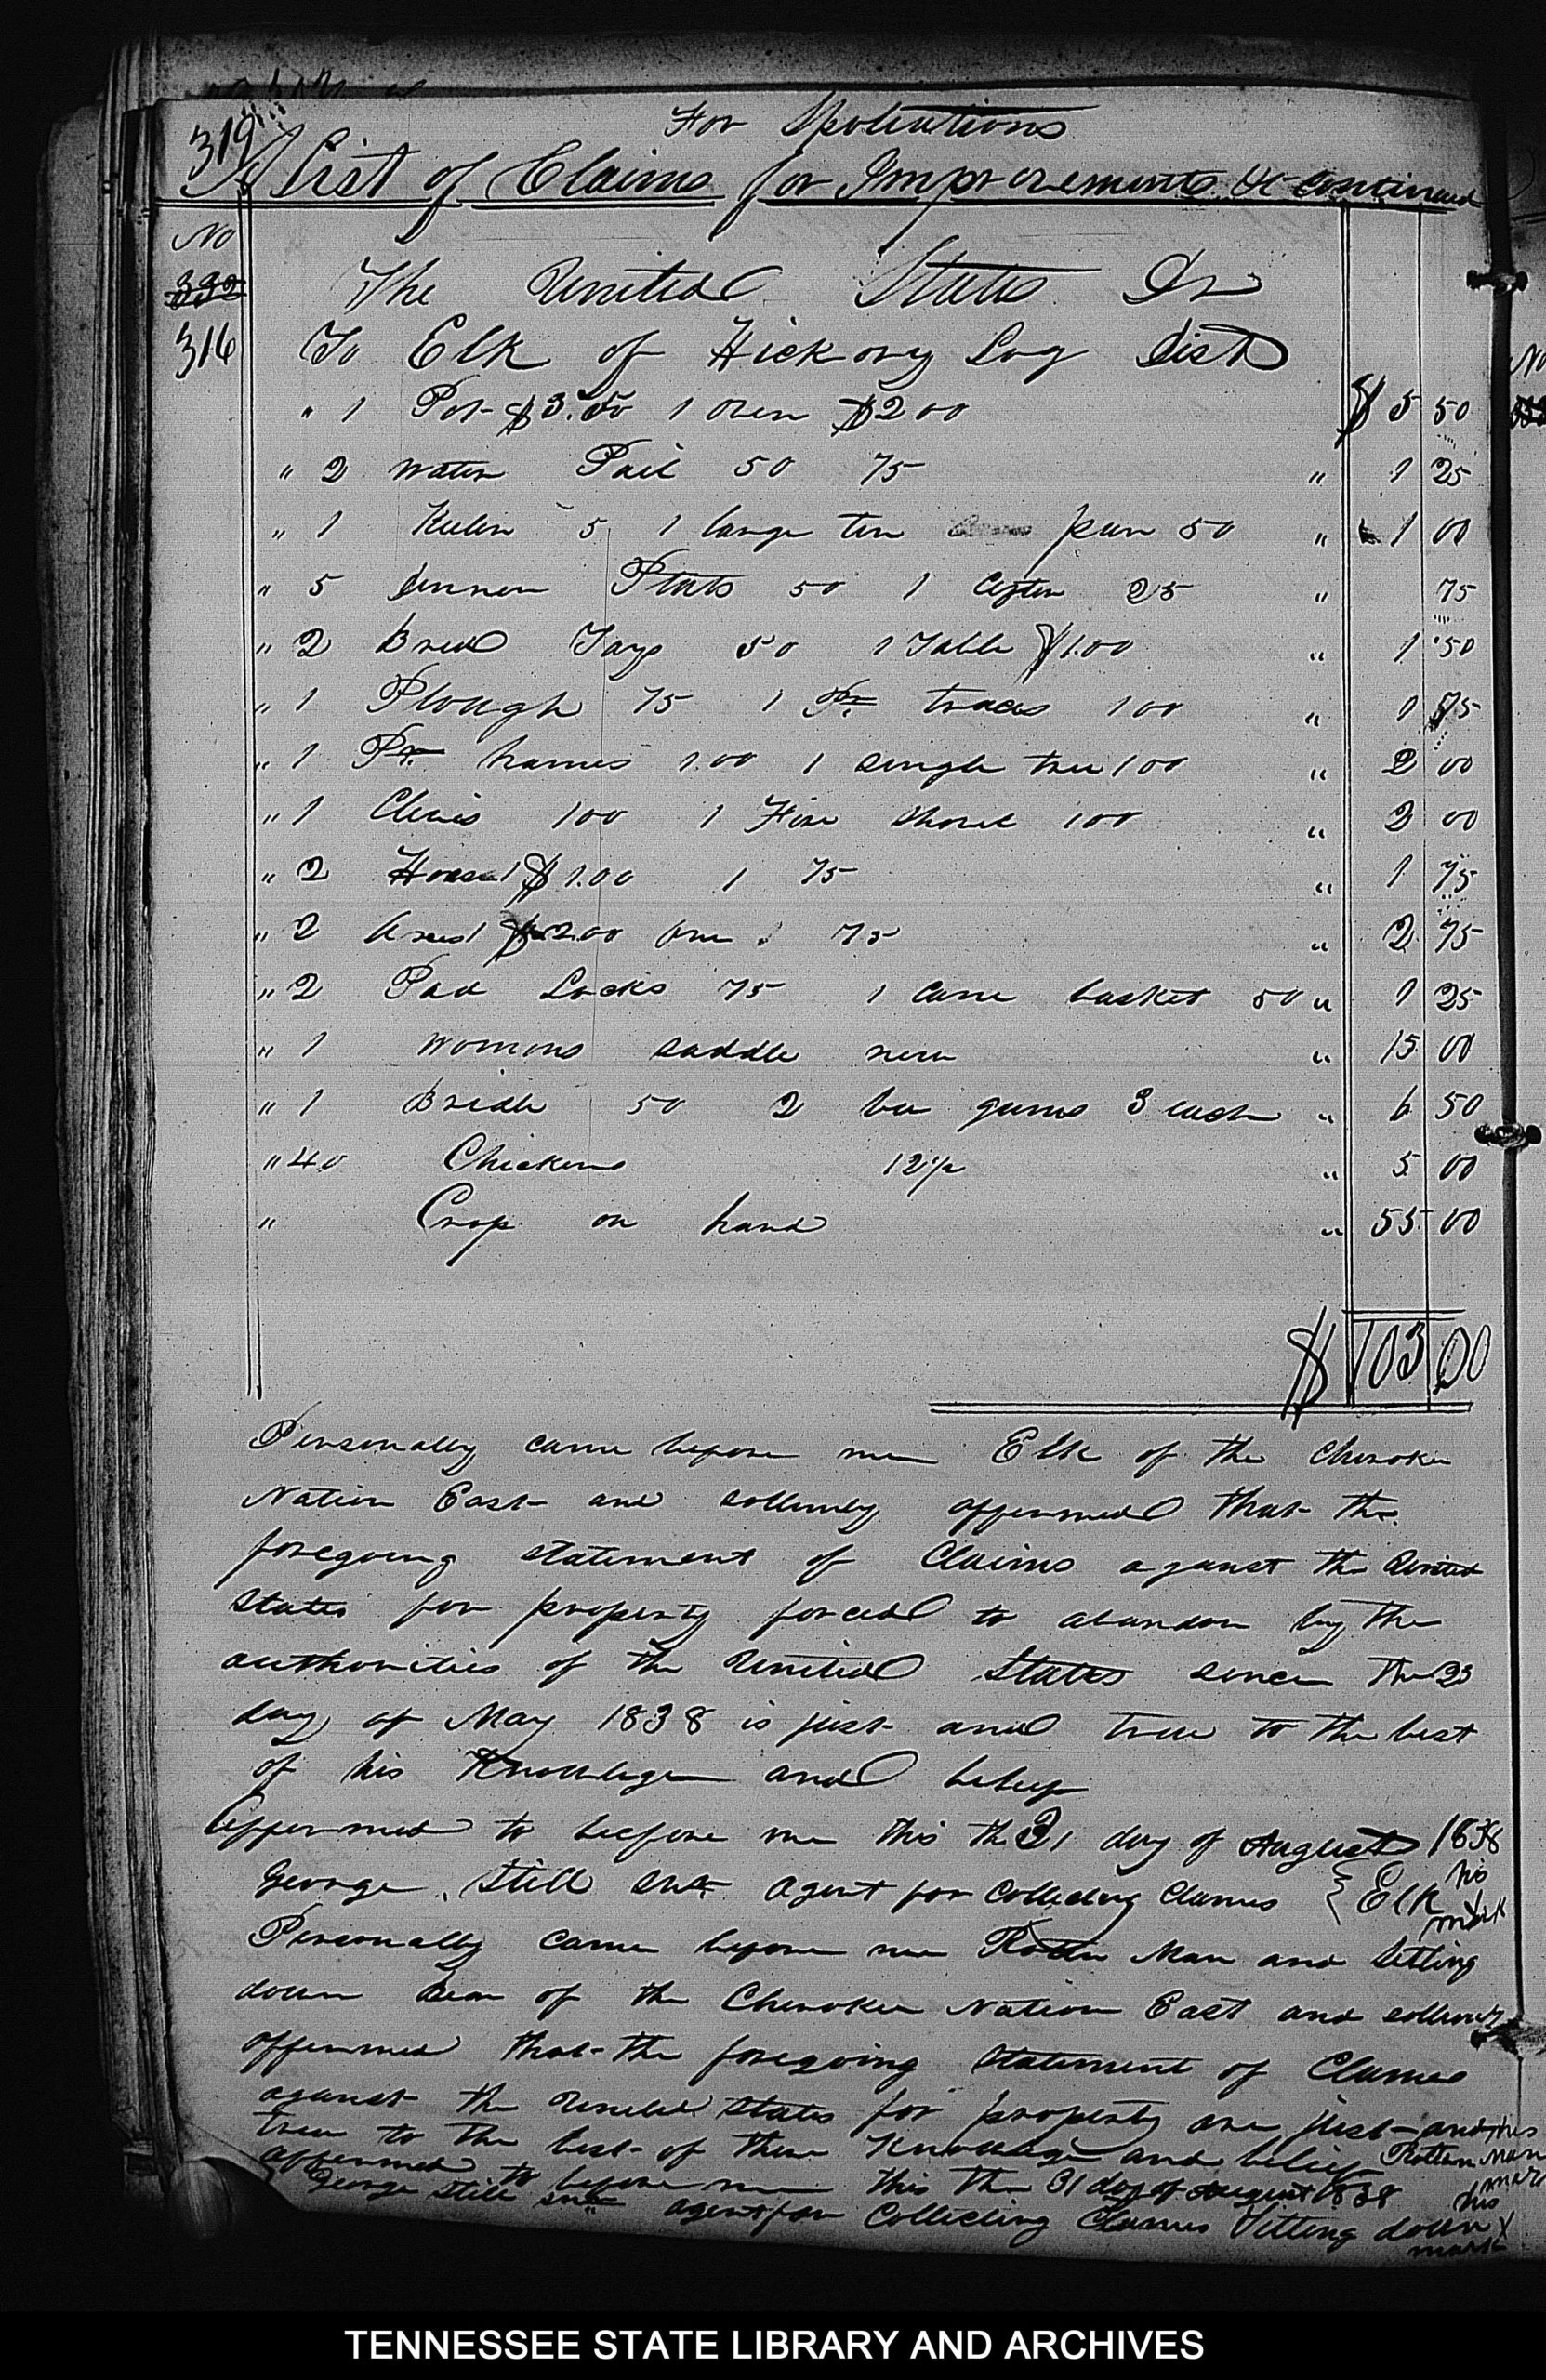 For Spoliations
319
A List of Claims for Improvements &c continued
No
332
The United States Dr
316 To Elk of Hickory Log Dist
" 1 Pot $3.50 1 Oven $2 00 $ 5 50
" 2 Water Pail 50 75 " 1 25
" 1 5 1 large tin pan 50 " 1 00
" 5 dinner Plats 50 1 25 " 75
" 2 Bred Trays 50 1 Table $1.00 " 1 50
" 1 Plough 75 1 Pr traces 100 " 1 75
" 1 Pr hames 1.00 1 single tree 100 " 2 00
" 1 Clevis 100 1 Fire Shovel 100 " 2 00
" 2 $1.00 1 75 " 1 75
" 2 Axes 1 $2.00 one 75 " 2 75
" 2 Pad Locks 75 1 cane basket 50 " 1 25
" 1 Womons saddle new " 15 00
" 1 Bridle 50 2 bee gums 3 each " 6 50
" 40 Chickens 12½ " 5 00
" Crop on hand " 55 00
$ 103 00
Personally came before me Elk of the Cherokee
Nation East and sollemly affirmed that the
foregoing statement of Claims against the United
States for property forced to abandon by the
authorities of the United States since the 23
day of May 1838 is just and true to the best
of his Knowledge and belief
Affirmed to before me this the 31 day of August 1838
George Still Snr agent for Collecting Claims { Elk his
mark
Personally came before me Rotten Man and Sitting
down Bear of the Cherokee Nation East and sollemly
affirmed that the foregoing Statement of Claims
against the United States for property are just and his
true to the best of there Knowledge and belief Rotten Man
mark
affirmed to before me this the 31 day of August 1838 his
George Still Snr agent for Collecting Claims Sitting down X
mark
TENNESSEE STATE LIBRARY AND ARCHIVES